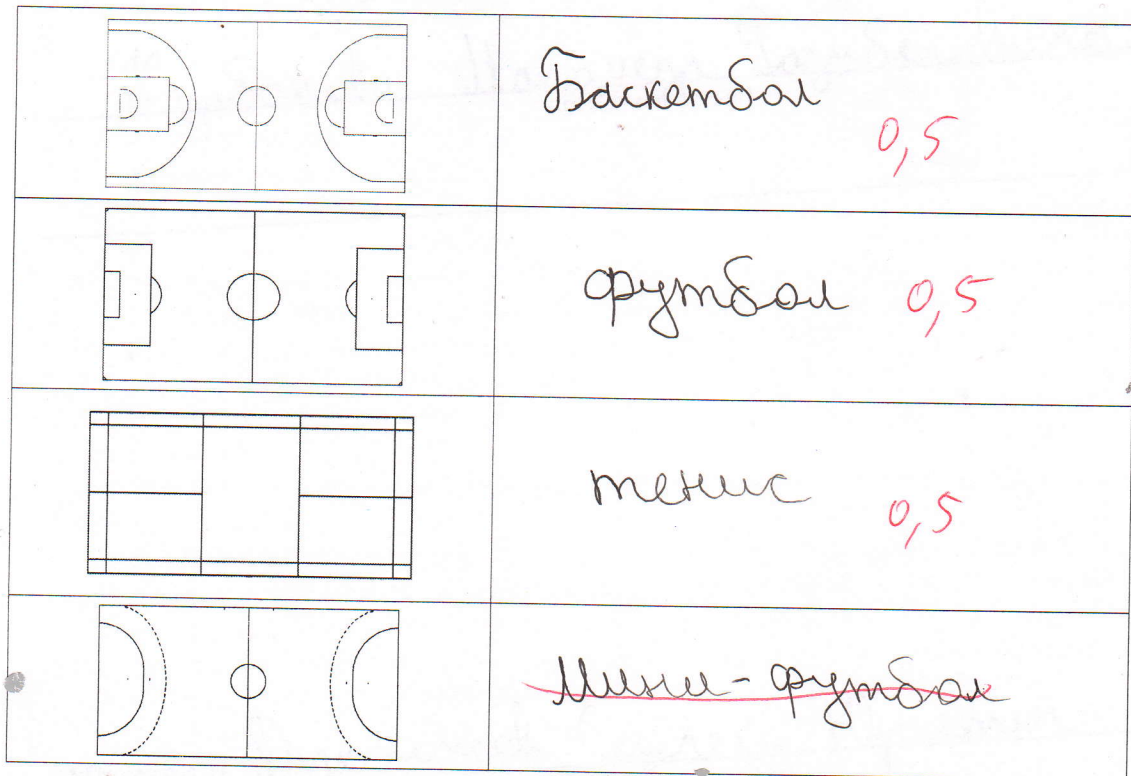 Баскетбол
0,5
футбол 0,5
тенис
0,5
Мини-футбол